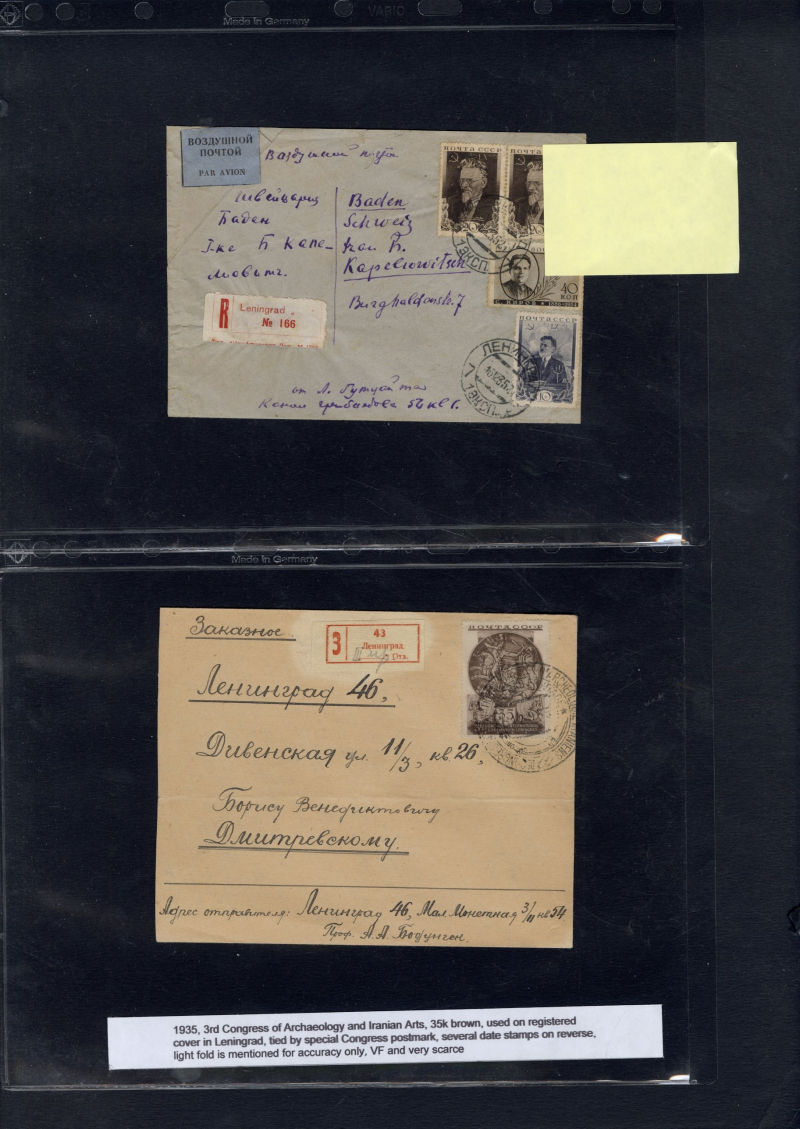 VARIO
Made in Germany
ВОЗДУШНОЙ
ПОЧТОЙ
PAR AVION
Воздушной почтой
ПОЧТА СССР
ПОЧТА СССР
20
20
Швейцария
Баден
Г-же Б Капе-
ловитч.
Baden
Schweiz
Frau B.
Kapelowitsch
Burghaldenstr. 7
40
КОП
С. КИРОВ ★ 1886-1934
R Leningrad
№ 166
ПОЧТА СССР
10
ЛЕНИНГРАД
от Л.
Канал Грибоедова 56 кв Г.
Made in Germany
Заказное.
З 43
Ленинград
Отд.
ПОЧТА СССР
35
Ленинград 46,
Дивенская ул. 11/3, кв. 26,
Борису Венедиктовичу
Дмитревскому.
Адрес отправителя: Ленинград 46, Мал. Монетная 3/11 кв 54
Проф. А.А. Бодунген.
1935, 3rd Congress of Archaeology and Iranian Arts, 35k brown, used on registered
cover in Leningrad, tied by special Congress postmark, several date stamps on reverse,
light fold is mentioned for accuracy only, VF and very scarce